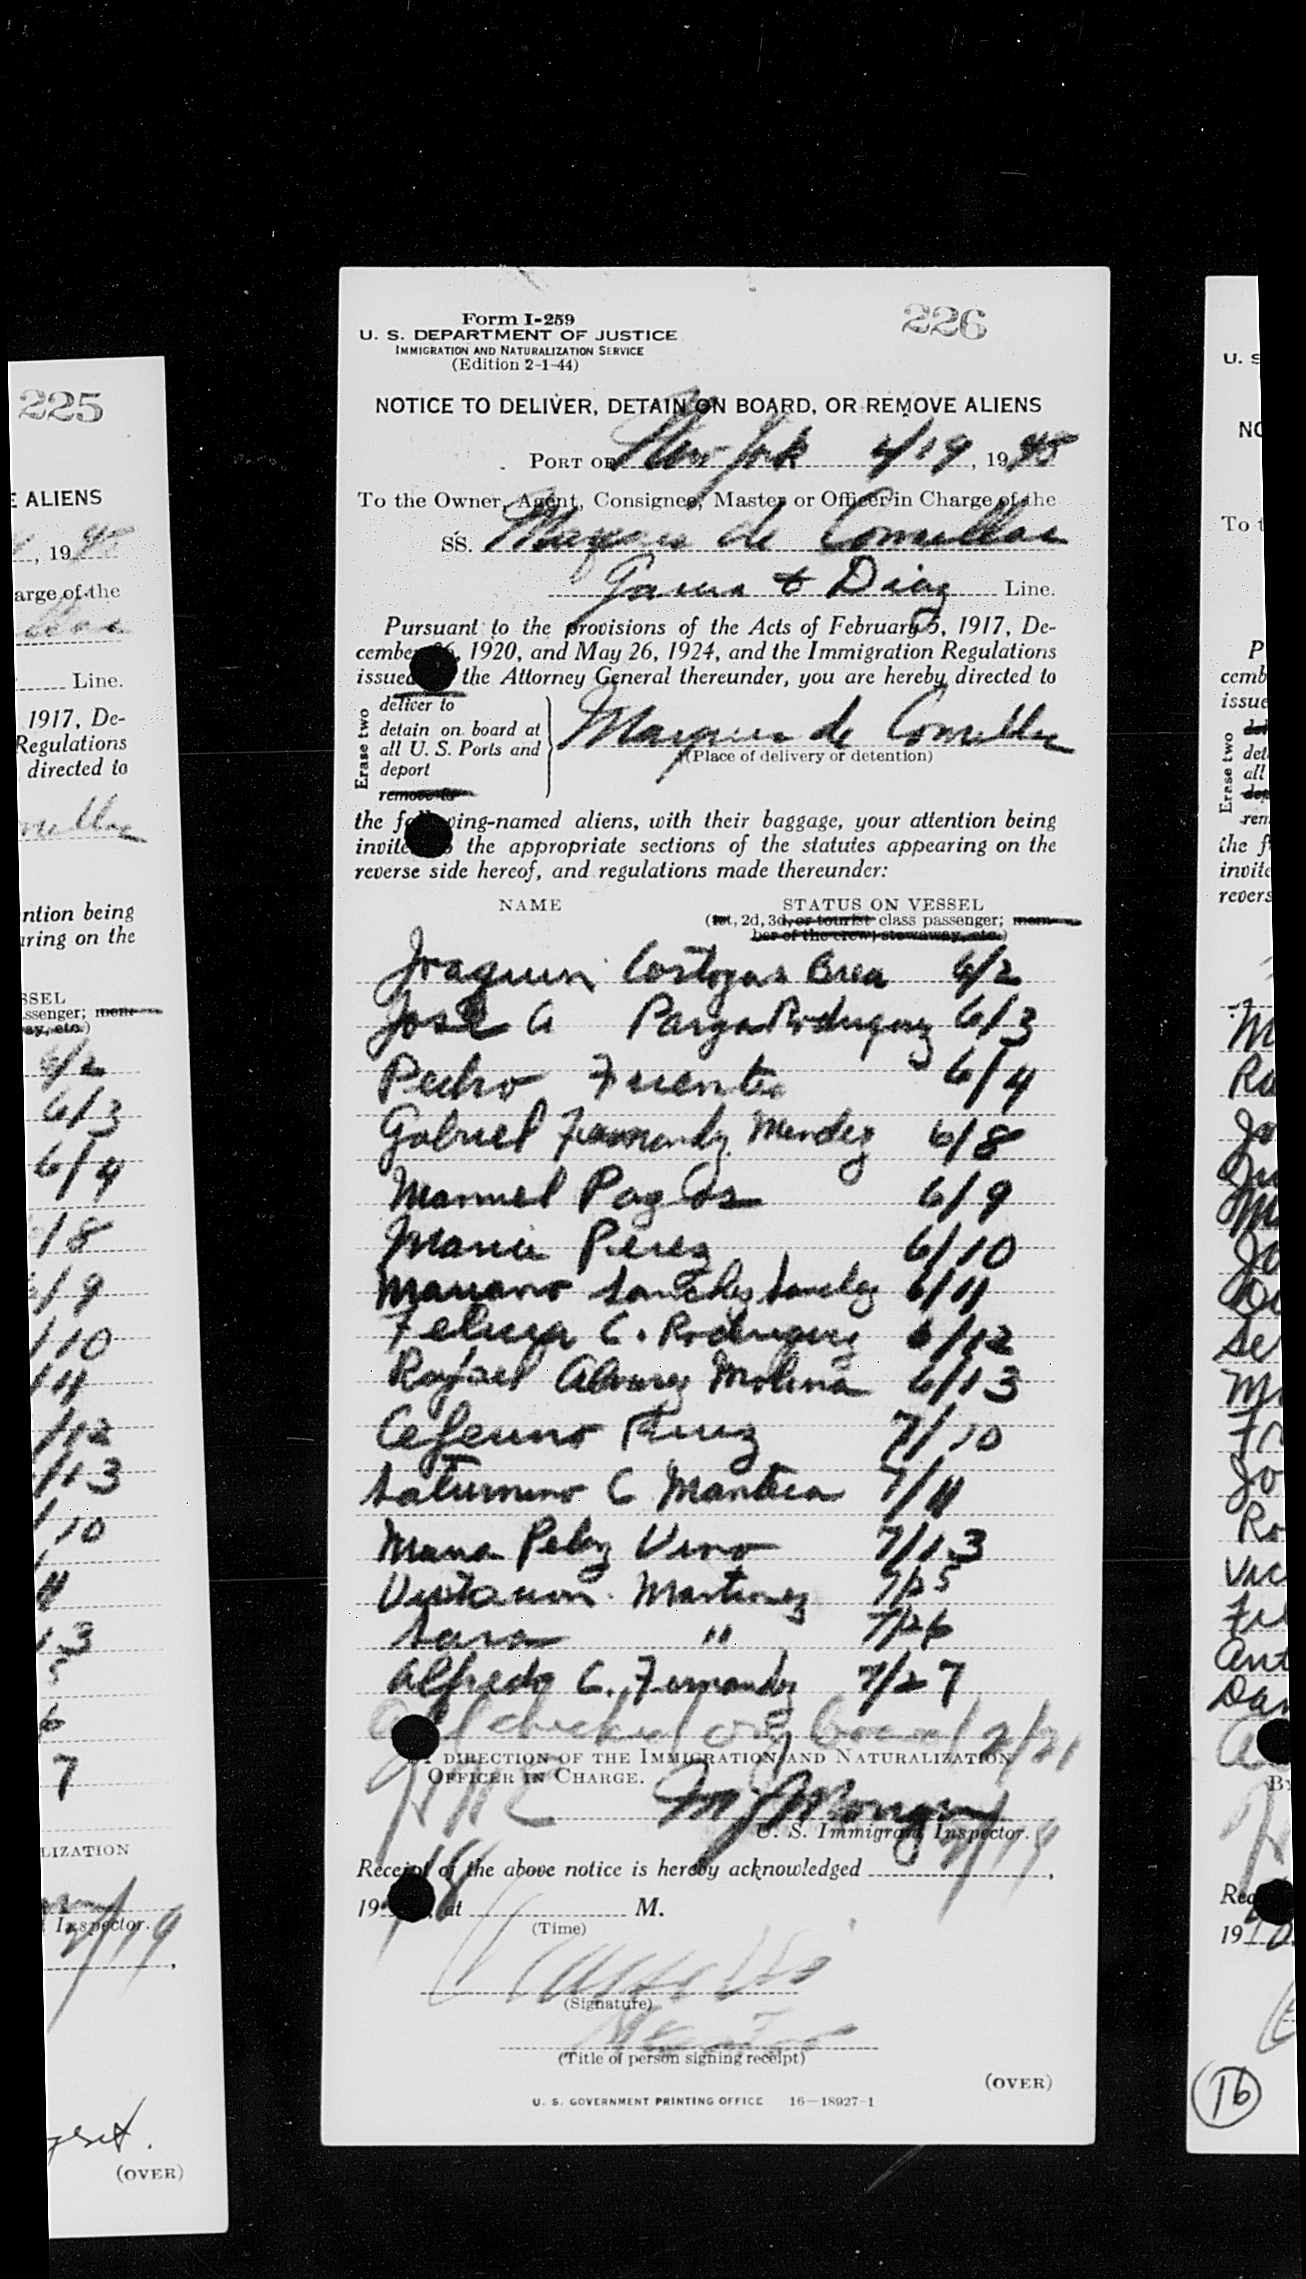 226
Form I-259
U. S. DEPARTMENT OF JUSTICE
IMMIGRATION AND NATURALIZATION SERVICE
(Edition 2-1-44)
NOTICE TO DELIVER, DETAIN ON BOARD, OR REMOVE ALIENS
PORT OF New York 4/19, 1945
To the Owner, Agent, Consignee, Master or Officer in Charge of the
SS. Marques de Comillas
Garcia & Diaz Line.
Pursuant to the provisions of the Acts of February 5, 1917, De-
cember 26, 1920, and May 26, 1924, and the Immigration Regulations
issued the Attorney General thereunder, you are hereby directed to
Erase two
deliver to
detain on board at
all U. S. Ports and
deport
remove to
Marques de Comillas
(Place of delivery or detention)
the following-named aliens, with their baggage, your attention being
invited the appropriate sections of the statutes appearing on the
reverse side hereof, and regulations made thereunder:
NAME STATUS ON VESSEL
(1st, 2d, 3d, or tourist class passenger; mem-
ber of the crew; stowaway, etc.)
Joaquin Brea 6/2
Jose A Parga Rodriguez 6/3
Pedro Fuentes 6/4
Gabriel Fernandez Mendez 6/8
Manuel Pages 6/9
Maria Perez 6/10
Mariano Sanchez Sanchez 6/11
Felicia C. Rodriguez 6/12
Rafael Alvarez Molina 6/13
Ceferino Perez 7/10
Saturnino C Manteca 7/11
Maria Pelaez Vino 7/13
Martinez 7/25
Sara " 7/26
Alfredo C. Fernandez 7/27
checked on board 2/21
DIRECTION OF THE IMMIGRATION AND NATURALIZATION
OFFICER IN CHARGE.
U. S. Immigrant Inspector.
Receipt of the above notice is hereby acknowledged ,
19 at M.
(Time)
(Signature)
(Title of person signing receipt)
(OVER)
U. S. GOVERNMENT PRINTING OFFICE 16—18927-1
225
E ALIENS
, 1945
arge of the
Line.
1917, De-
Regulations
directed to
ntion being
ring on the
SSEL
ssenger; mem-
ay, etc.)
6/2
6/3
6/4
/8
/9
/10
/11
/12
/13
/10
11
13
5
6
7
LIZATION
Inspector.
(OVER)
U. S
NO
To t
P
cemb
issue
Erase two
det
all
dep
rem
the f
invite
revers
M
Ro
Jo
Ju
M
Jo
Se
M
Fr
Jo
Ro
Vic
Fil
Ant
Dan
By
Rec
19
16